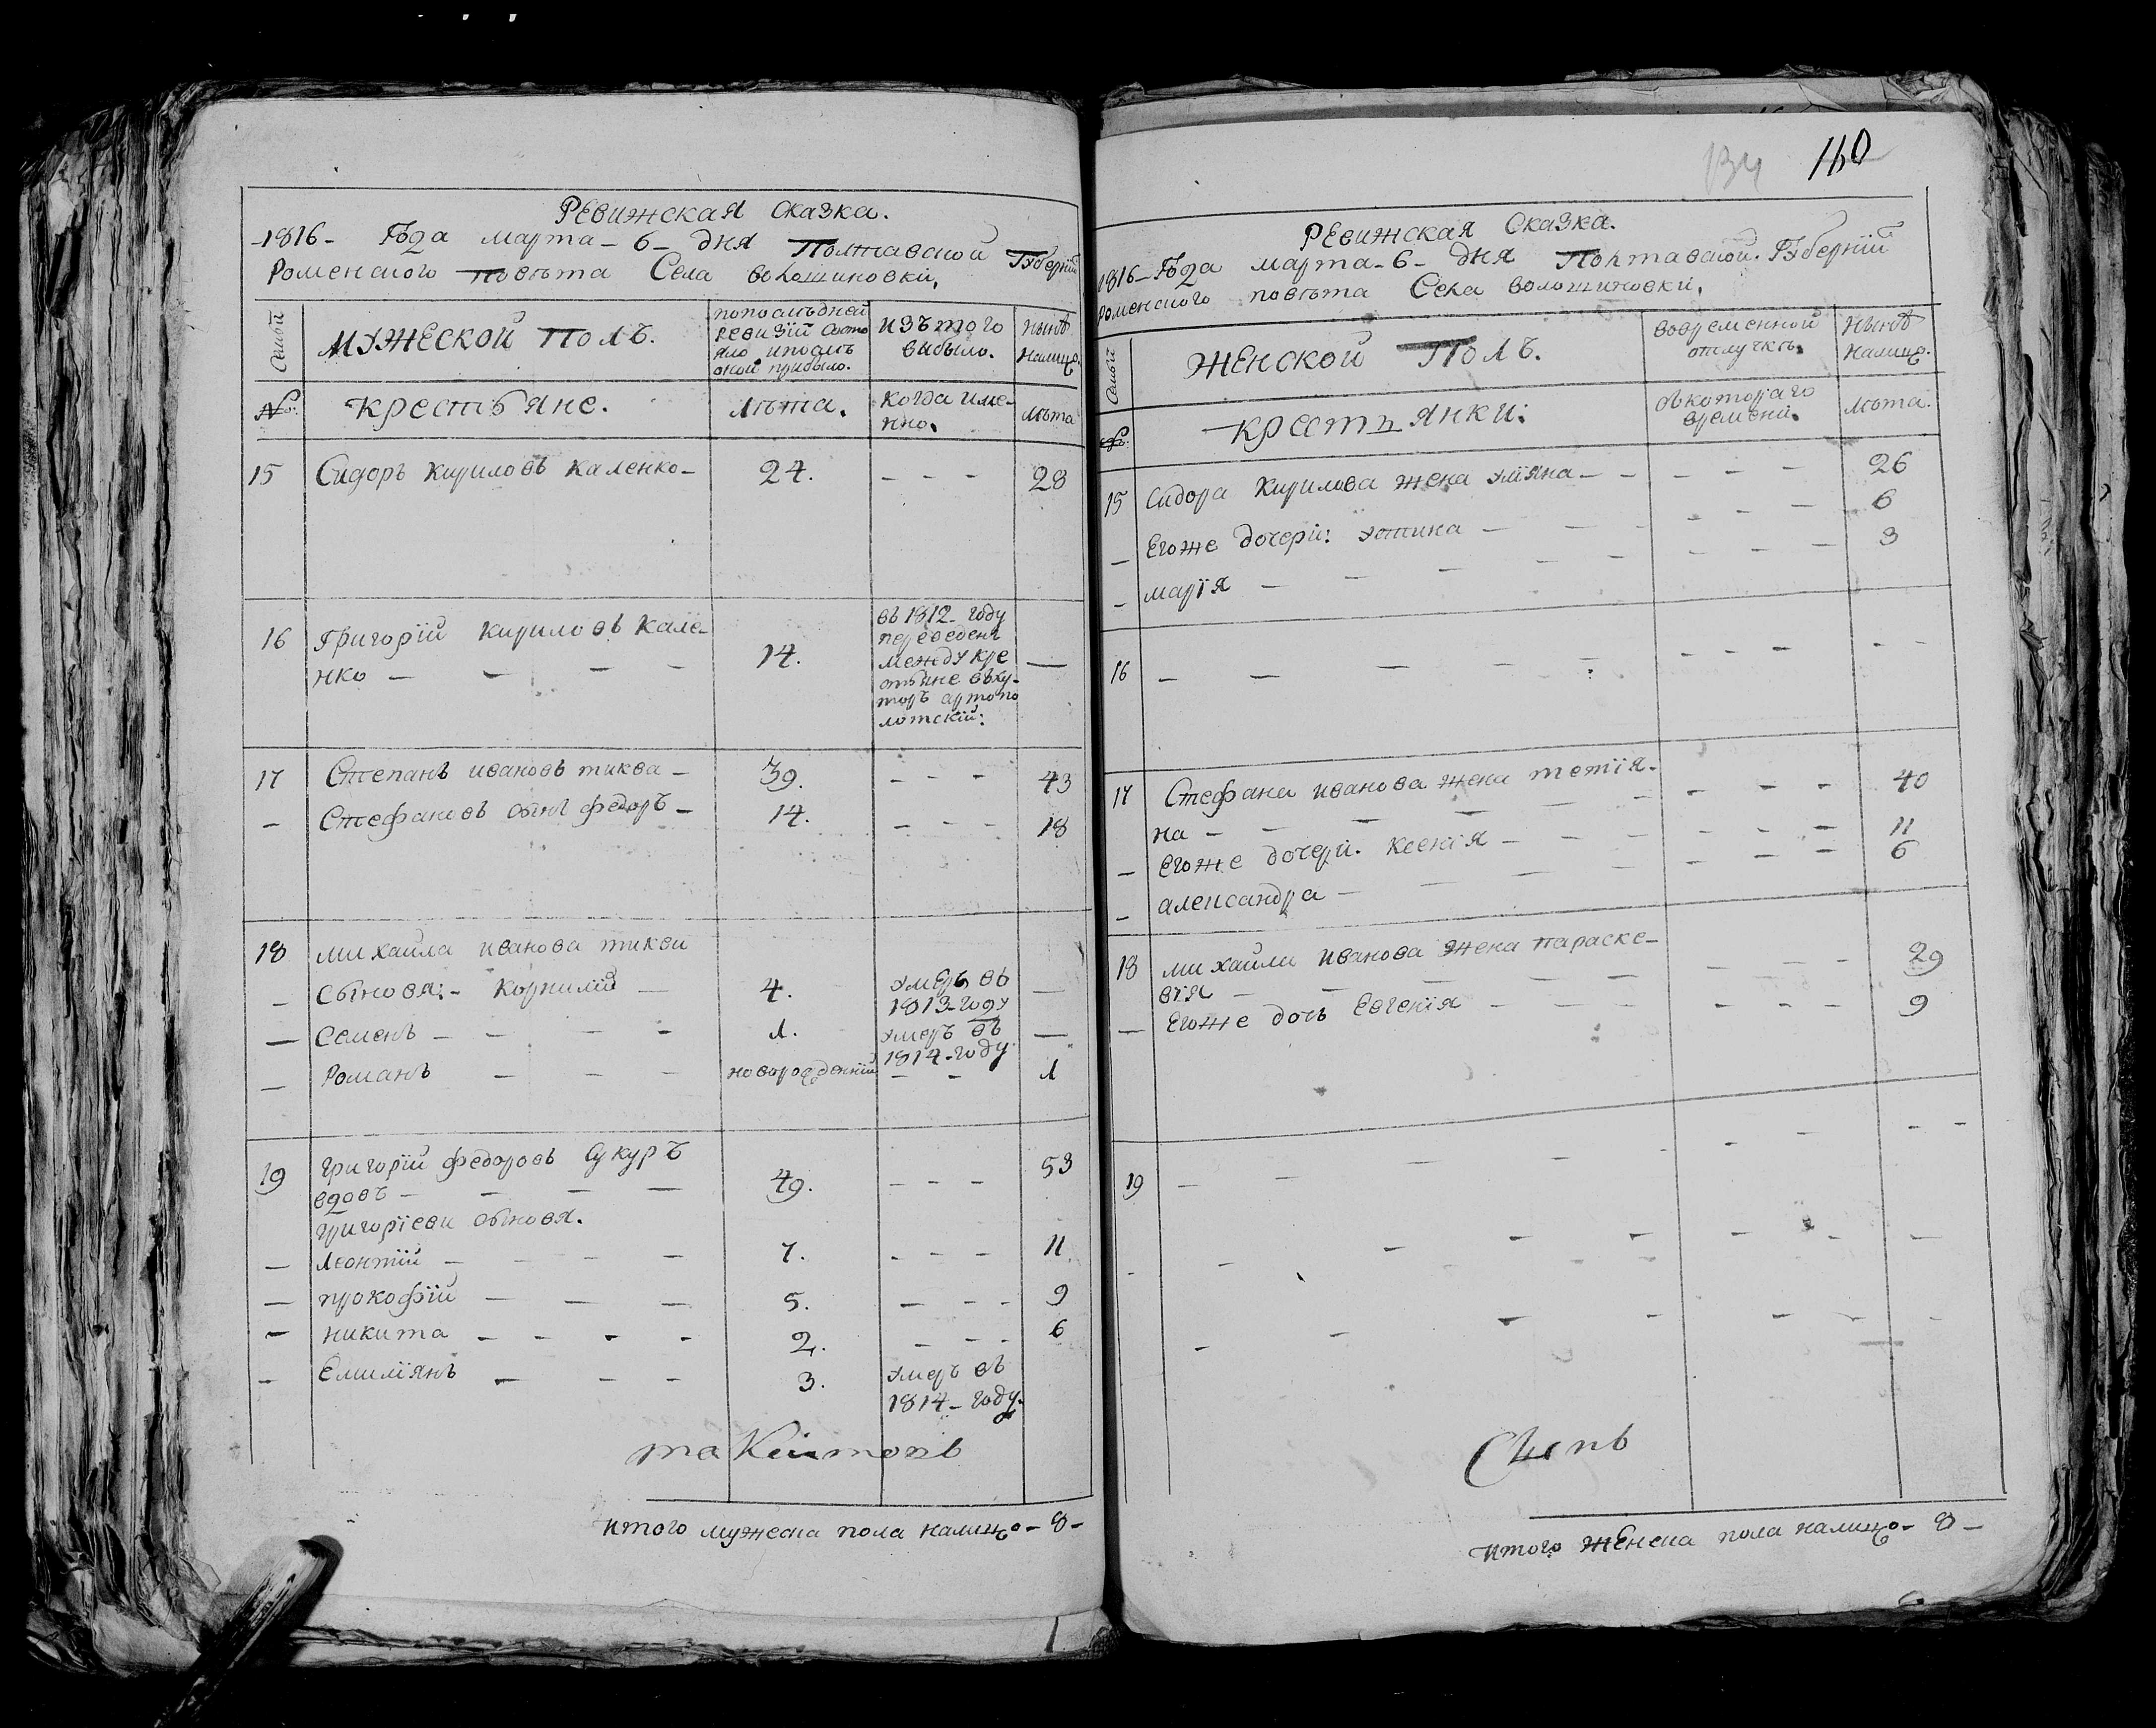 Ревижская Сказка.
-1816- Года марта- 6- дня Полтавской Губернїй
Роменского повѣта Села волошиновки,
Семьи
Мужеской Полъ.
попослѣдней
ревизїй состо
яло ипослѣ
оной прибыло.
изъ того
выбыло.
нынѣ
налицо.
№:
крестьяне.
Лѣта.
когда име-
нно.
лѣта
15 Сидоръ кириловъ каленко- 24. - - - 28
16 Григорїй кириловъ кале-
нко - - - - 14.
въ 1812- году
переведенъ
между кре
стьяне въху-
торъ артопо
лотскїй: -
17 Степанъ ивановъ тиква - 39. - - - 43
- Стефановъ сынъ федоръ - 14. - - - 18
18 михайла иванова тикви
- сыновя:- корнилїй - 4. умеръ въ
1813-году -
- Семенъ - - - - 1. умеръ въ
1814-году -
- Романъ - - - новорожденнїй - - 1
19 григорїй федоровъ Сукуръ
вдовъ - - - - 49. - - - 53
григорїеви сыновя.
- леонтїй - - - - 7. - - - 11
- прокофїй - - - 5. - - - 9
- никита - - - - 2. - - - 6
- Емилїянъ - - - 3. умеръ въ
1814- году.
итого мужеска пола налицо- 8-
134 160
Ревижская Сказка.
1816- Года марта- 6- дня Полтавской. Губернїй
роменского повѣта Села волошиновки,
Семьи
Женской Полъ.
вовременной
отлучкѣ.
нынѣ
налицо.
№:
крестьянки:
съкоторاго
времени.
лѣта.
15 Сидора Кирилова жена улїяна - - - - - 26
- Егоже дочери: устина - - - - - - 6
- марїя - - - - - - - - 3
16 - - - - - - - - - -
17 Стефана иванова жена тетїя-
на - - - - - - - - 40
- Егоже дочери. ксенїя - - - - - - 11
- александра - - - - - - - 6
18 михайли иванова жена параске-
вїя - - - - - - - 29
- Егоже дочь Евгенїя - - - - - - 9
19 - - - - - - - -
итого женска пола налицо- 8-